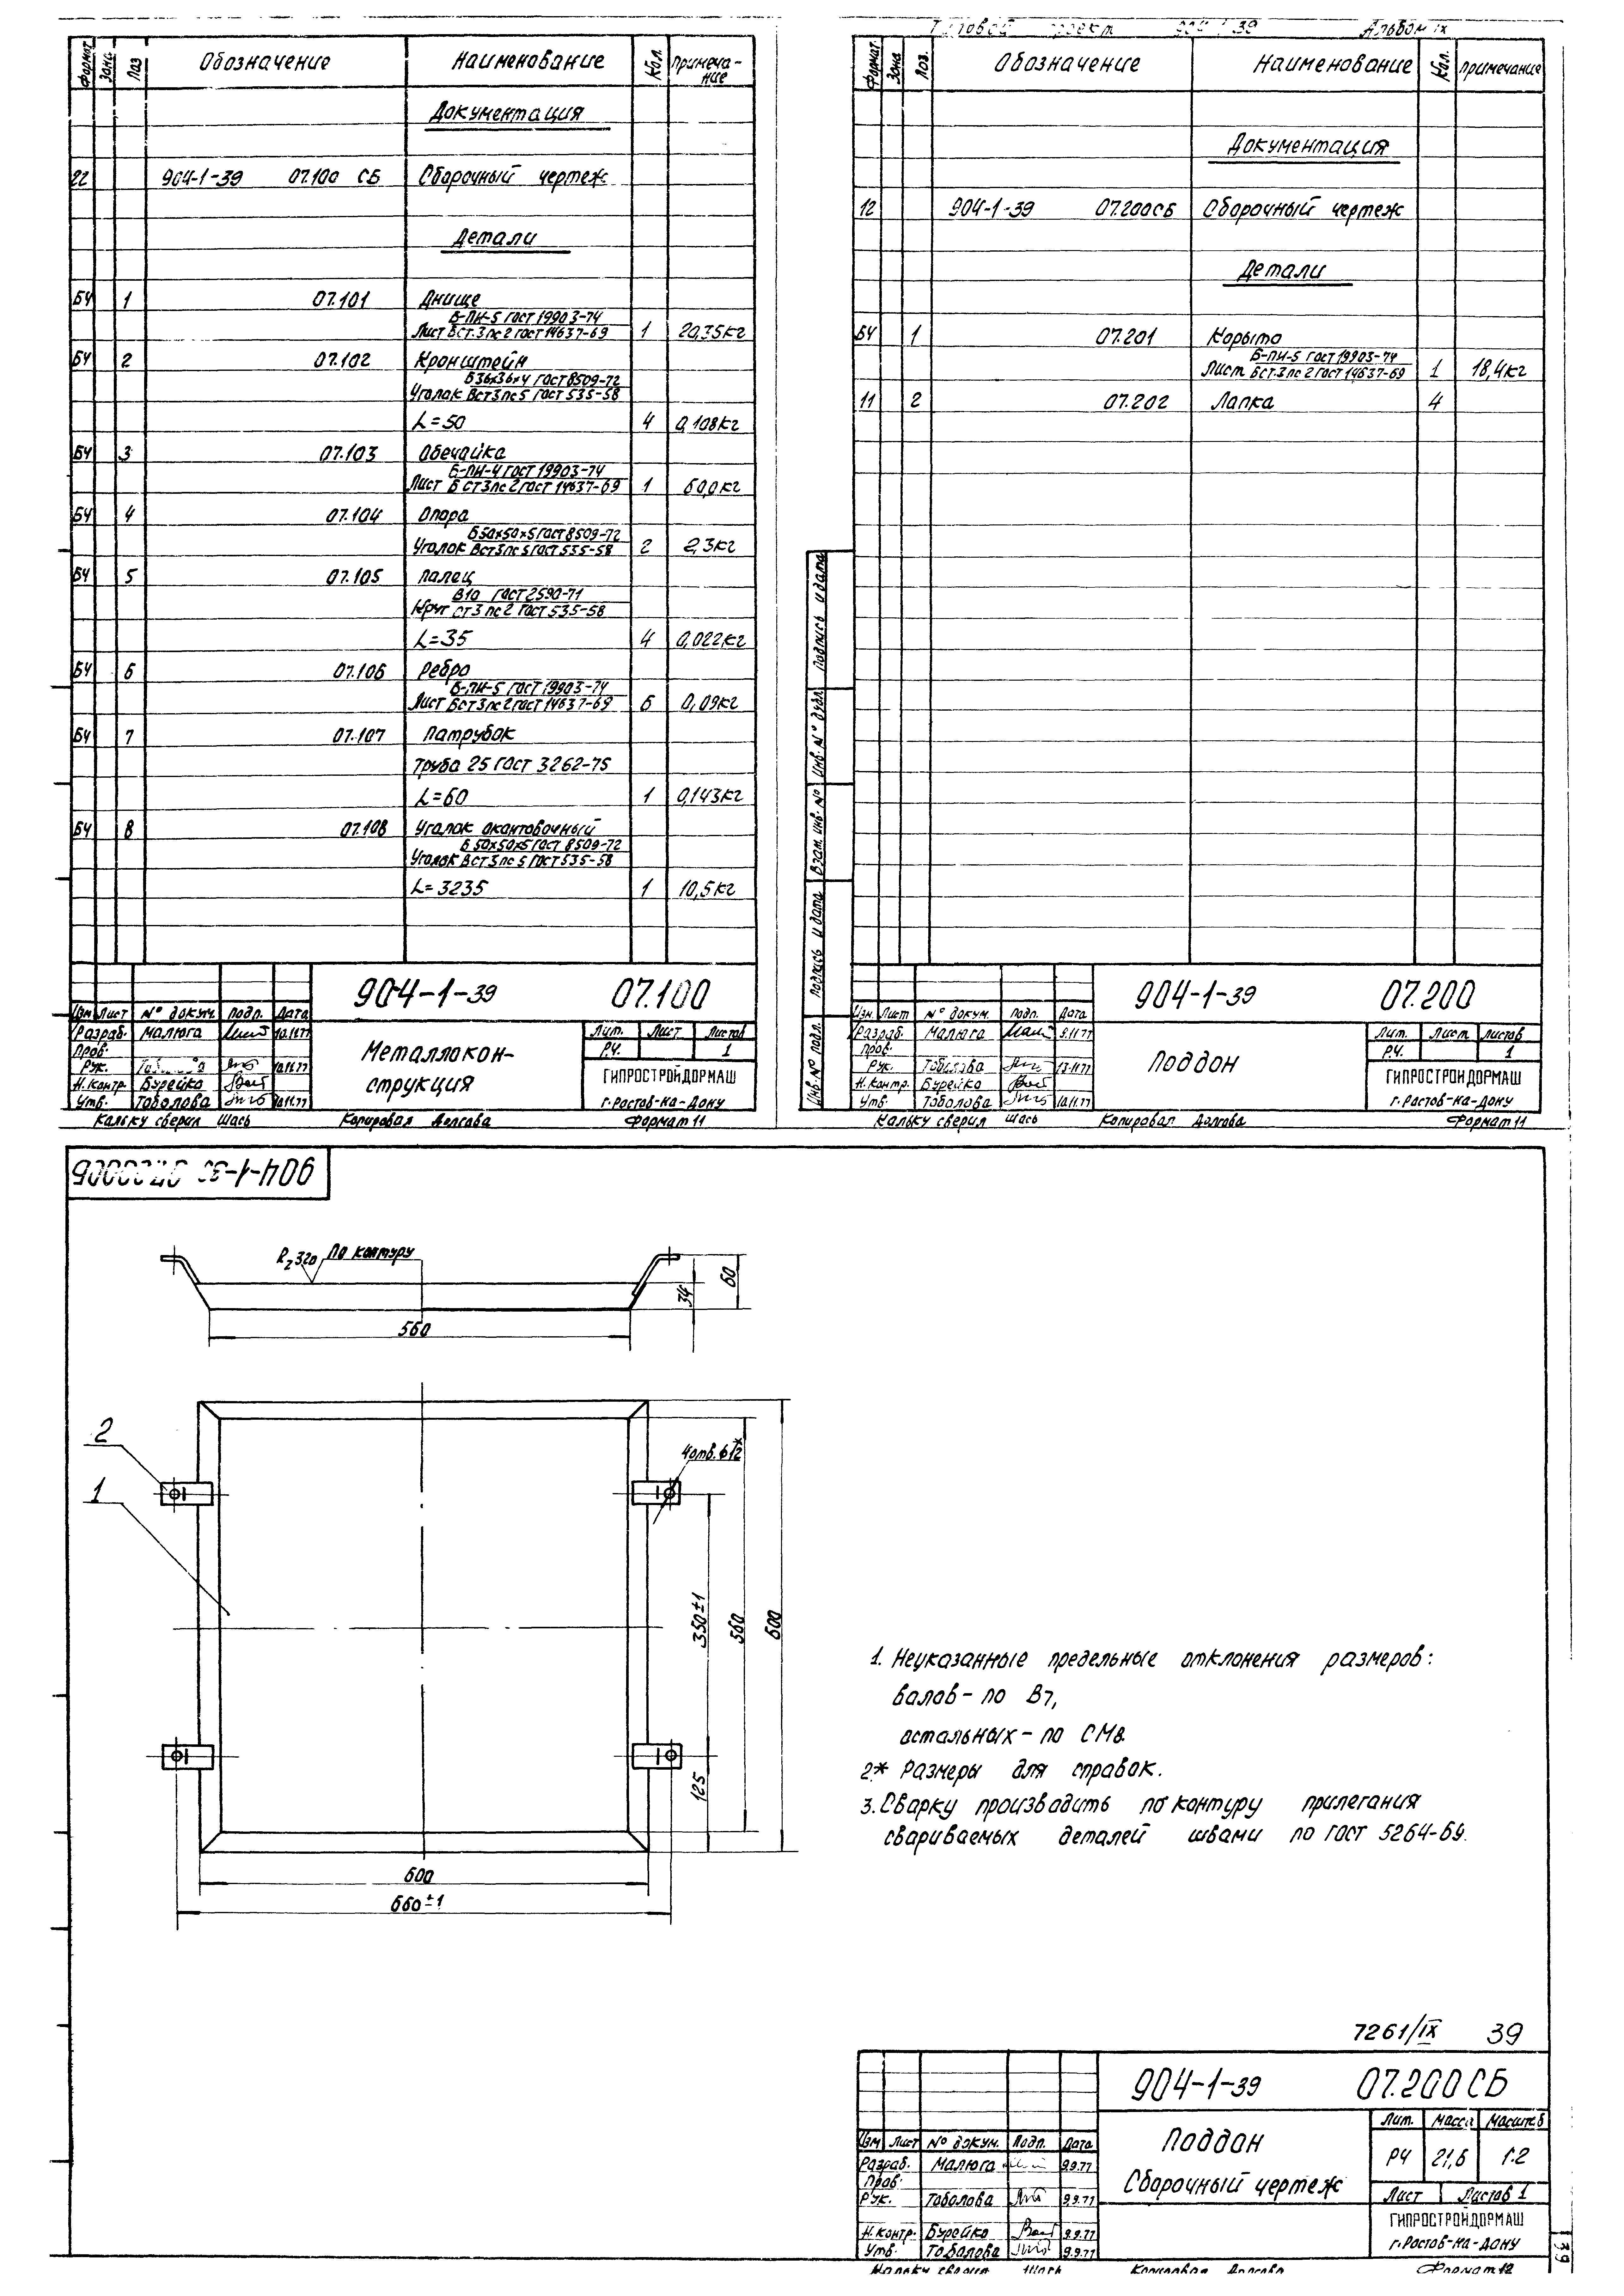 Типовой проект 904-1-39 Альбом IX
Формат Зона Поз Обозначение Наименование Кол. Примеча-
ние
Документация
22 904-1-39 07.100 СБ Сборочный чертеж
Детали
БЧ 1 07.101 Днище
Б-ПН-5 ГОСТ 19903-74
Лист БСТ.3 пс 2 ГОСТ 14637-69 1 20,35кг
БЧ 2 07.102 Кронштейн
Б36х36х4 ГОСТ 8509-72
Уголок ВСт3пс5 ГОСТ 535-58
L=50 4 0,108кг
БЧ 3 07.103 Обечайка
Б-ПН-4 ГОСТ 19903-74
Лист Б СТ3пс2 ГОСТ 14637-69 1 60,0кг
БЧ 4 07.104 Опора
Б50х50х5 ГОСТ 8509-72
Уголок ВСт3пс5 ГОСТ 535-58 2 2,3кг
БЧ 5 07.105 Палец
В10 ГОСТ 2590-71
Круг СТ3 пс2 ГОСТ 535-58
L=35 4 0,022кг
БЧ 6 07.106 Ребро
Б-ПН-5 ГОСТ 19903-74
Лист БСт3пс2 ГОСТ 14637-69 6 0,09кг
БЧ 7 07.107 Патрубок
Труба 25 ГОСТ 3262-75
L=60 1 0,143кг
БЧ 8 07.108 Уголок окантовочный
Б 50х50х5 ГОСТ 8509-72
Уголок ВСт3пс5 ГОСТ 535-58
L=3235 1 10,5кг
904-1-39 07.100
Изм Лист № докум. Подп. Дата
Разраб. Малюга 10.11.77
Пров.
Рук. 10.11.77
Н.контр. Бурейко
Утв. Тоболова 10.11.77
Металлокон-
струкция
Лит. Лист Листов
РЧ. 1
ГИПРОСТРОЙДОРМАШ
г.Ростов-на-Дону
Кальку сверил Шась Копировал Долгова Формат 11
Формат. Зона Поз. Обозначение Наименование Кол. Примечание
Документация
12 904-1-39 07.200СБ Сборочный чертеж
Детали
БЧ 1 07.201 Корыто
Б-ПН-5 ГОСТ 19903-74
Лист БСт.3пс2 ГОСТ 14637-69 1 18,4кг
11 2 07.202 Лапка 4
Инв. № подл. Подпись и дата Взам. инв. № Инв. № дубл. Подпись и дата
904-1-39 07.200
Изм. Лист № докум. Подп. Дата
Разраб. Малюга 9.11.77
Пров.
Рук. Тоболова
Н.контр. Бурейко
Утв. Тоболова 10.11.77
Поддон
Лит. Лист Листов
РЧ. 1
ГИПРОСТРОЙДОРМАШ
г.Ростов-на-Дону
Кальку сверил Шась Копировал Долгова Формат 11
904-1-39 07.200СБ
Rz320 По контуру
34
60
560
2
1
4отв. ф12*
350±1
560
600
125
600
660±1
1. Неуказанные предельные отклонения размеров:
валов - по В7,
остальных - по СМ8.
2.* Размеры для справок.
3. Сварку производить по контуру прилегания
свариваемых деталей швами по ГОСТ 5264-69.
7261/IX 39
904-1-39 07.200СБ
Изм Лист № докум. Подп. Дата
Разраб. Малюга 9.9.77
Пров.
Рук. Тоболова 9.9.77
Н.контр. Бурейко 9.9.77
Утв. Тоболова 9.9.77
Поддон
Сборочный чертеж
Лит. Масса Масштаб
РЧ 21,6 1:2
Лист Листов 1
ГИПРОСТРОЙДОРМАШ
г.Ростов-на-Дону
39
Кальку сверил Шась Копировал Долгова Формат 12